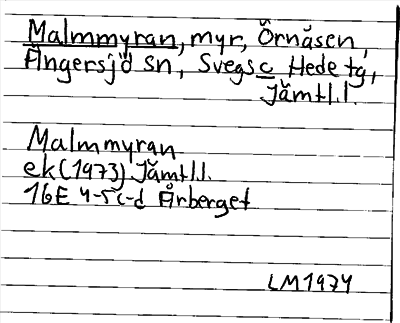 Malmmyran, myr, Örnåsen,
Ängersjö sn, Svegs c Hede tg,
Jämtl.l.
Malmmyran
ek (1973) Jämtl.l.
16E 4-5 c-d Årberget
LM1974